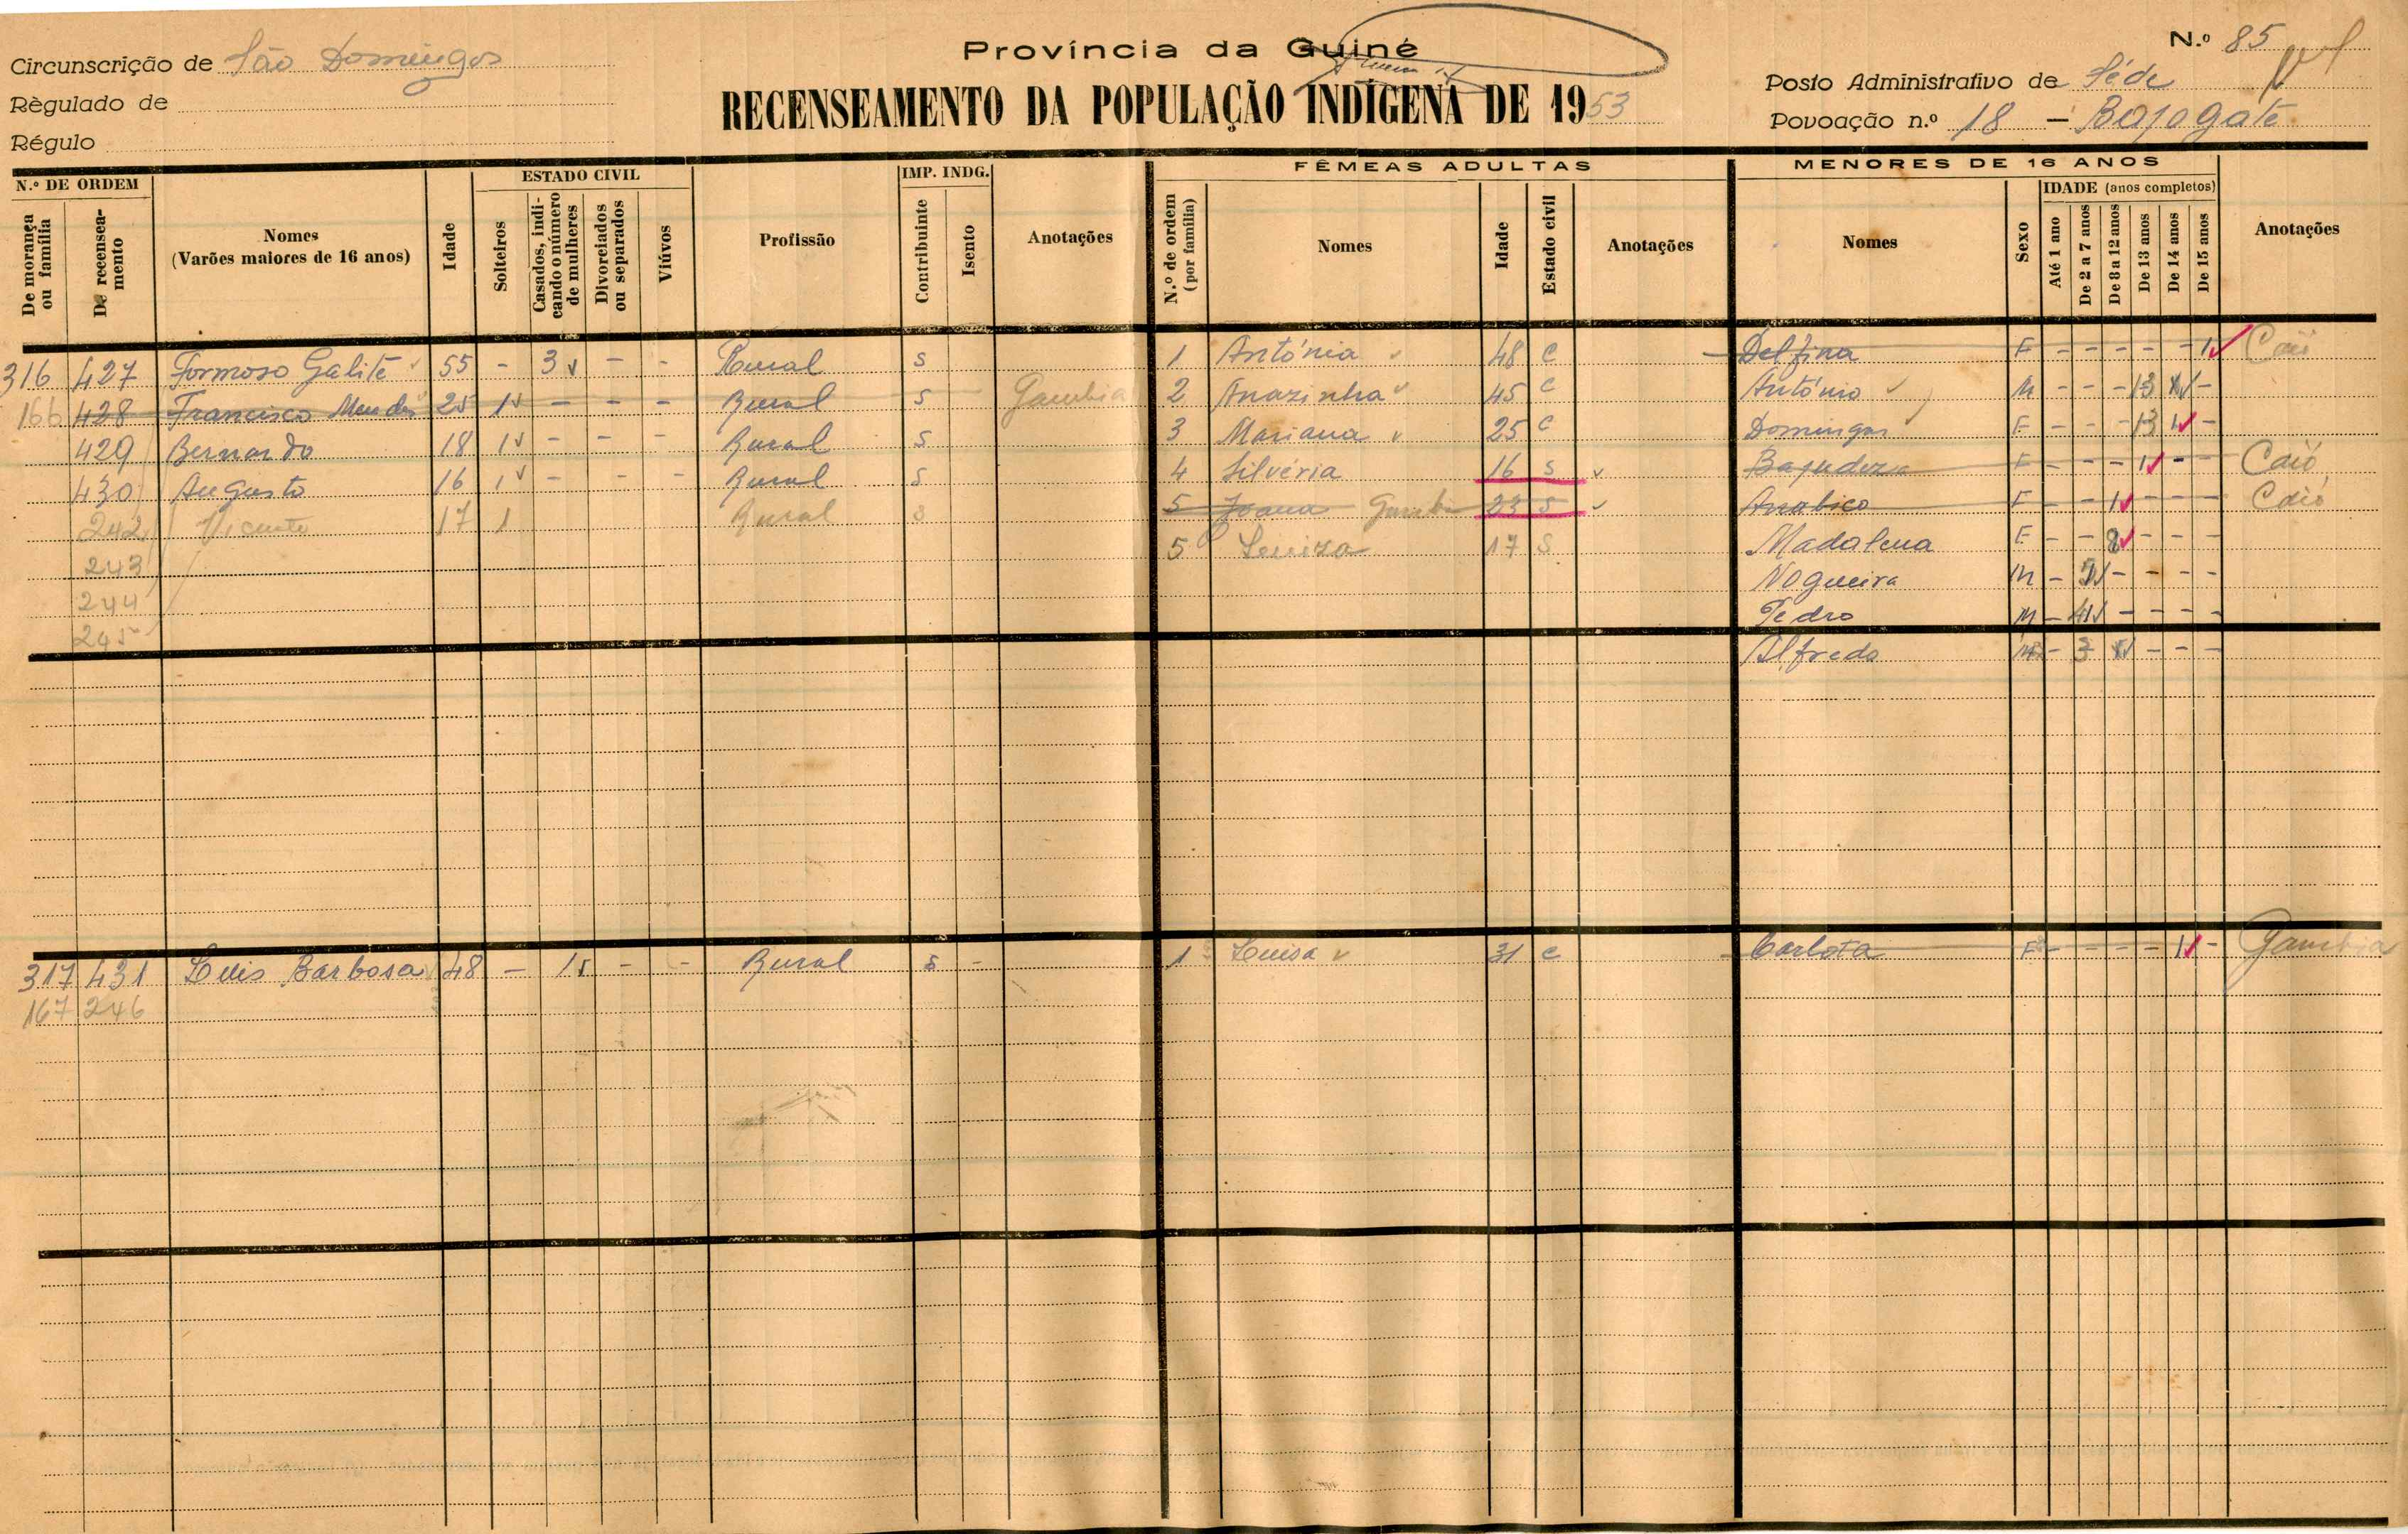 Província da Guiné
Circunscrição de São Domingos
N.º 85
Règulado de
RECENSEAMENTO DA POPULAÇÃO INDÍGENA DE 1953
Posto Administrativo de Séde
Régulo
Povoação n.º 18 — Bojogate
N.º DE ORDEM ESTADO CIVIL IMP. INDG. FÊMEAS ADULTAS MENORES DE 16 ANOS
IDADE (anos completos)
De morança ou família
De recenseamento
Nomes
(Varões maiores de 16 anos)
Idade
Solteiros
Casados, indi-
cando o número
de mulheres
Divorciados
ou separados
Viúvos
Profissão
Contribuinte
Isento
Anotações
N.º de ordem
(por família)
Nomes
Idade
Estado civil
Anotações
Nomes
Sexo
Até 1 ano
De 2 a 7 anos
De 8 a 12 anos
De 13 anos
De 14 anos
De 15 anos
Anotações
316 427 Formoso Galité 55 - 3 - - Rural S 1 António 48 C Delfina F - - - - - 1 Caió
166 428 Francisco Mendes 25 1 - - - Rural S Gambia 2 Anazinha 45 C António M - - - 13 -
429 Bernardo 18 1 - - - Rural S 3 Mariana 25 C Domingas F - - - 13 1 -
430 Augusto 16 1 - - - Rural S 4 Silvéria 16 S F - - - 1 - - Caió
242 Vicente 17 1 Rural S 5 Joana Gambia 23 S F - - 1 - - - Caió
243 5 Luiza 17 S Madalena F - - 8 - - -
244 Nogueira M - - - - -
245 Pedro M - 4 - - - -
Alfredo M - 3 - - -
317 431 Luis Barbosa 48 - 1 - - Rural S - 1 Luisa 31 C Carlota F - - - - 1 - Gambia
167 246